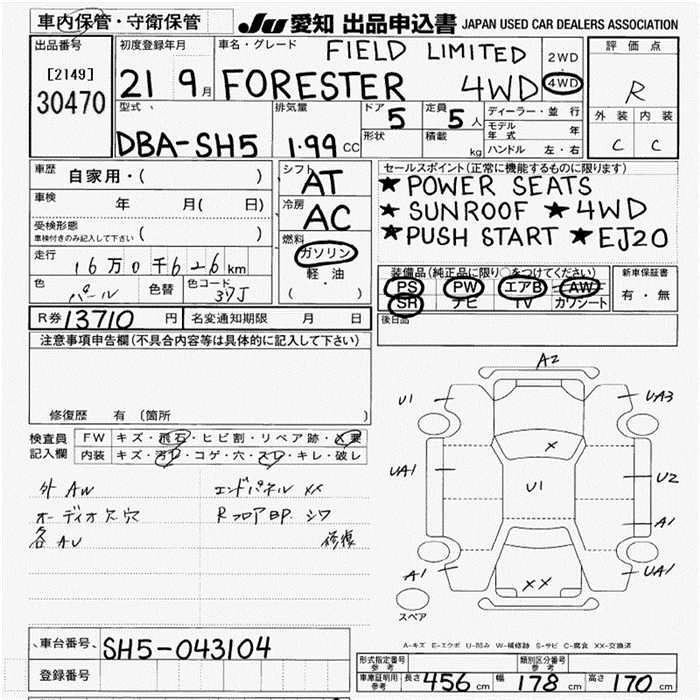 車内保管・守衛保管
JU 愛知 出品申込書 JAPAN USED CAR DEALERS ASSOCIATION
出品番号
[2149]
30470
初度登録年月
21 9月
車名・グレード
FIELD LIMITED
FORESTER 4WD
2WD
4WD
評価点
R
外装 内装
C C
型式
DBA-SH5
排気量
1.99 CC
ドア
5
定員
5人
形状
積載
kg
ディーラー・並行
モデル年式 年
ハンドル 左・右
車歴 自家用・( )
車検 年 月( 日)
受検形態
車検付きのみ記入して下さい ( )
走行 16万0千626km
色 パール 色替 色コード 37J
シフト
AT
冷房
AC
燃料
ガソリン
軽・油
( )
セールスポイント(正常に機能するものに限ります)
★POWER SEATS
★SUNROOF ★4WD
★PUSH START ★EJ20
装備品(純正品に限り○をつけてください)
PS PW エアB AW
SR ナビ TV カワシート
新車保証書
有・無
後日品
R券 13710 円 名変通知期限 月 日
注意事項申告欄(不具合内容等は具体的に記入して下さい)
修復歴 有 (箇所
検査員記入欄
FW キズ・飛石・ヒビ割・リペア跡・X要
内装 キズ・汚レ・コゲ・穴・スレ・キレ・破レ
外 AW エンドパネル XX
オーディオ欠穴 RフロアBP. シワ
各 AU 修復
A2
U1 UA3
X
UA1 U1 U2
A1
A1 XX UA1
スペア
A-キズ E-エクボ U-凹み W-補修跡 S-サビ C-腐食 XX-交換済
車台番号 SH5-043104
登録番号
形式指定番号 参考
類別区分番号 参考
車庫証明用 参考 長さ 456cm 幅 178cm 高さ 170cm